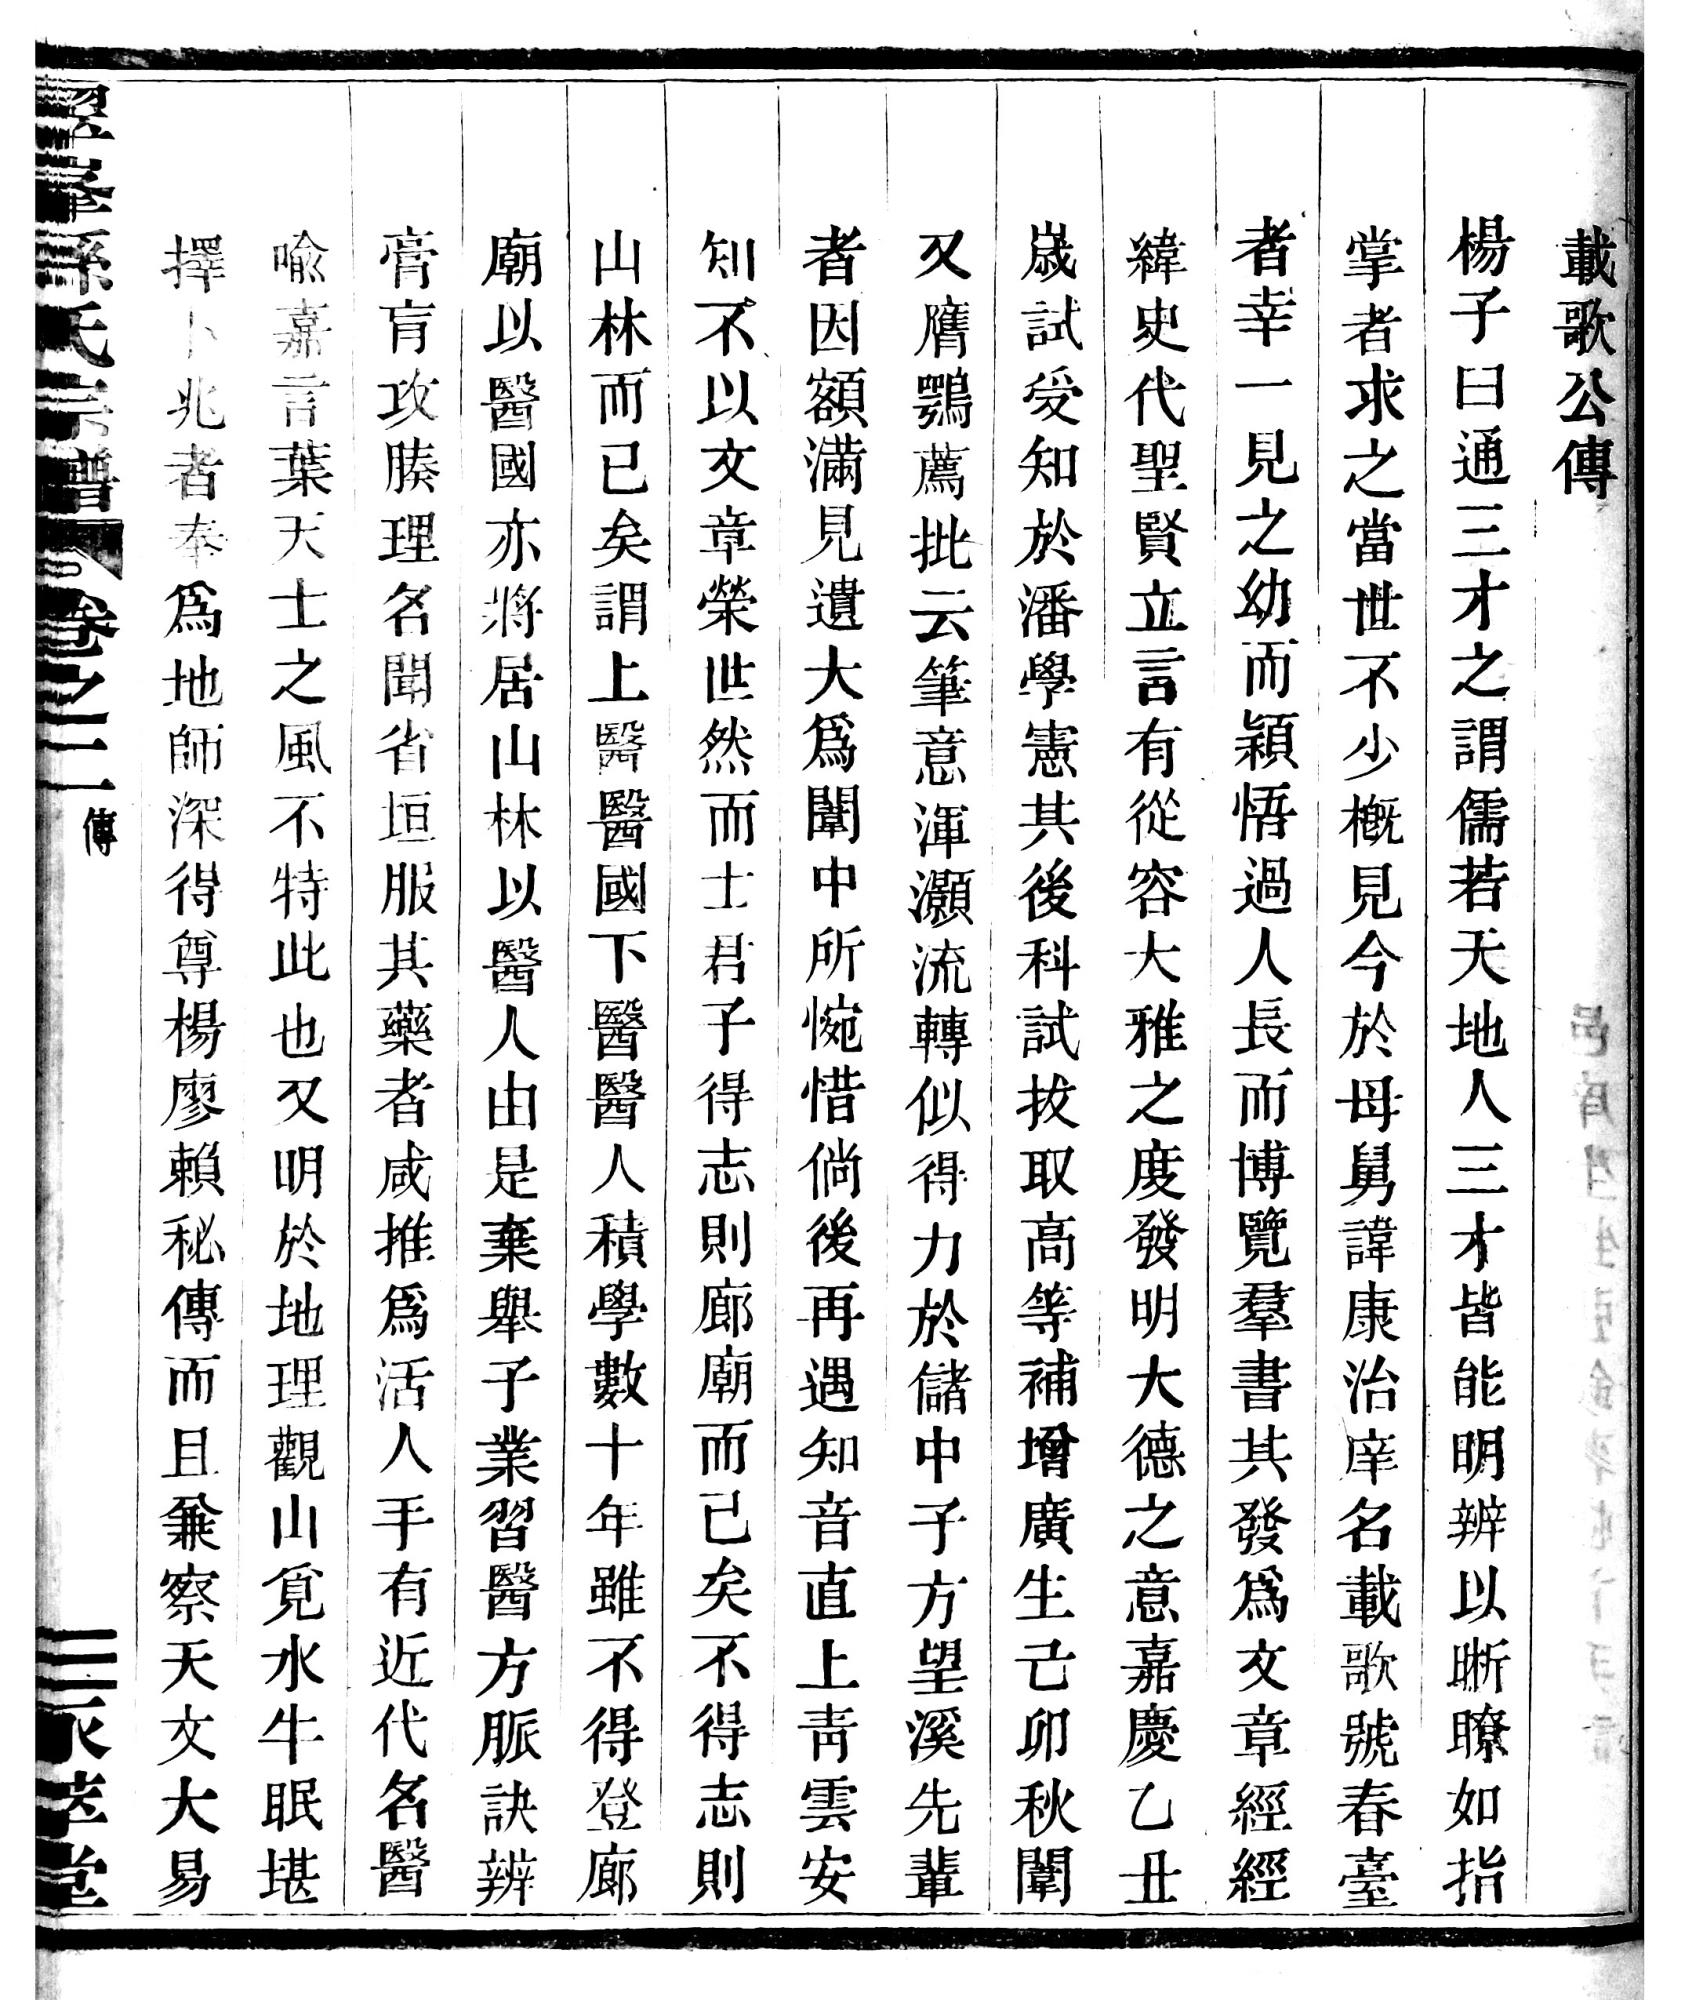 載歌公傳
楊子曰通三才之謂儒若天地人三才皆能明辨以晰瞭如指
掌者求之當世不少概見今於母舅諱康治庠名載歌號春臺
者幸一見之幼而穎悟過人長而博覽羣書其發爲文章經經
緯史代聖賢立言有從容大雅之度發明大德之意嘉慶乙丑
歲試受知於潘學憲其後科試拔取高等補增廣生己卯秋闈
又膺鶚薦批云筆意渾灝流轉似得力於儲中子方望溪先輩
者因額滿見遺大爲闈中所惋惜倘後再遇知音直上青雲安
知不以文章榮世然而士君子得志則廊廟而已矣不得志則
山林而已矣謂上醫醫國下醫醫人積學數十年雖不得登廊
廟以醫國亦將居山林以醫人由是棄舉子業習醫方脈訣辨
膏肓攻腠理名聞省垣服其藥者咸推爲活人手有近代名醫
喻嘉言葉天士之風不特此也又明於地理觀山覓水牛眠堪
擇卜兆者奉爲地師深得尊楊廖賴秘傳而且兼察天文大易
孫氏宗譜 卷之二 傳 三 堂